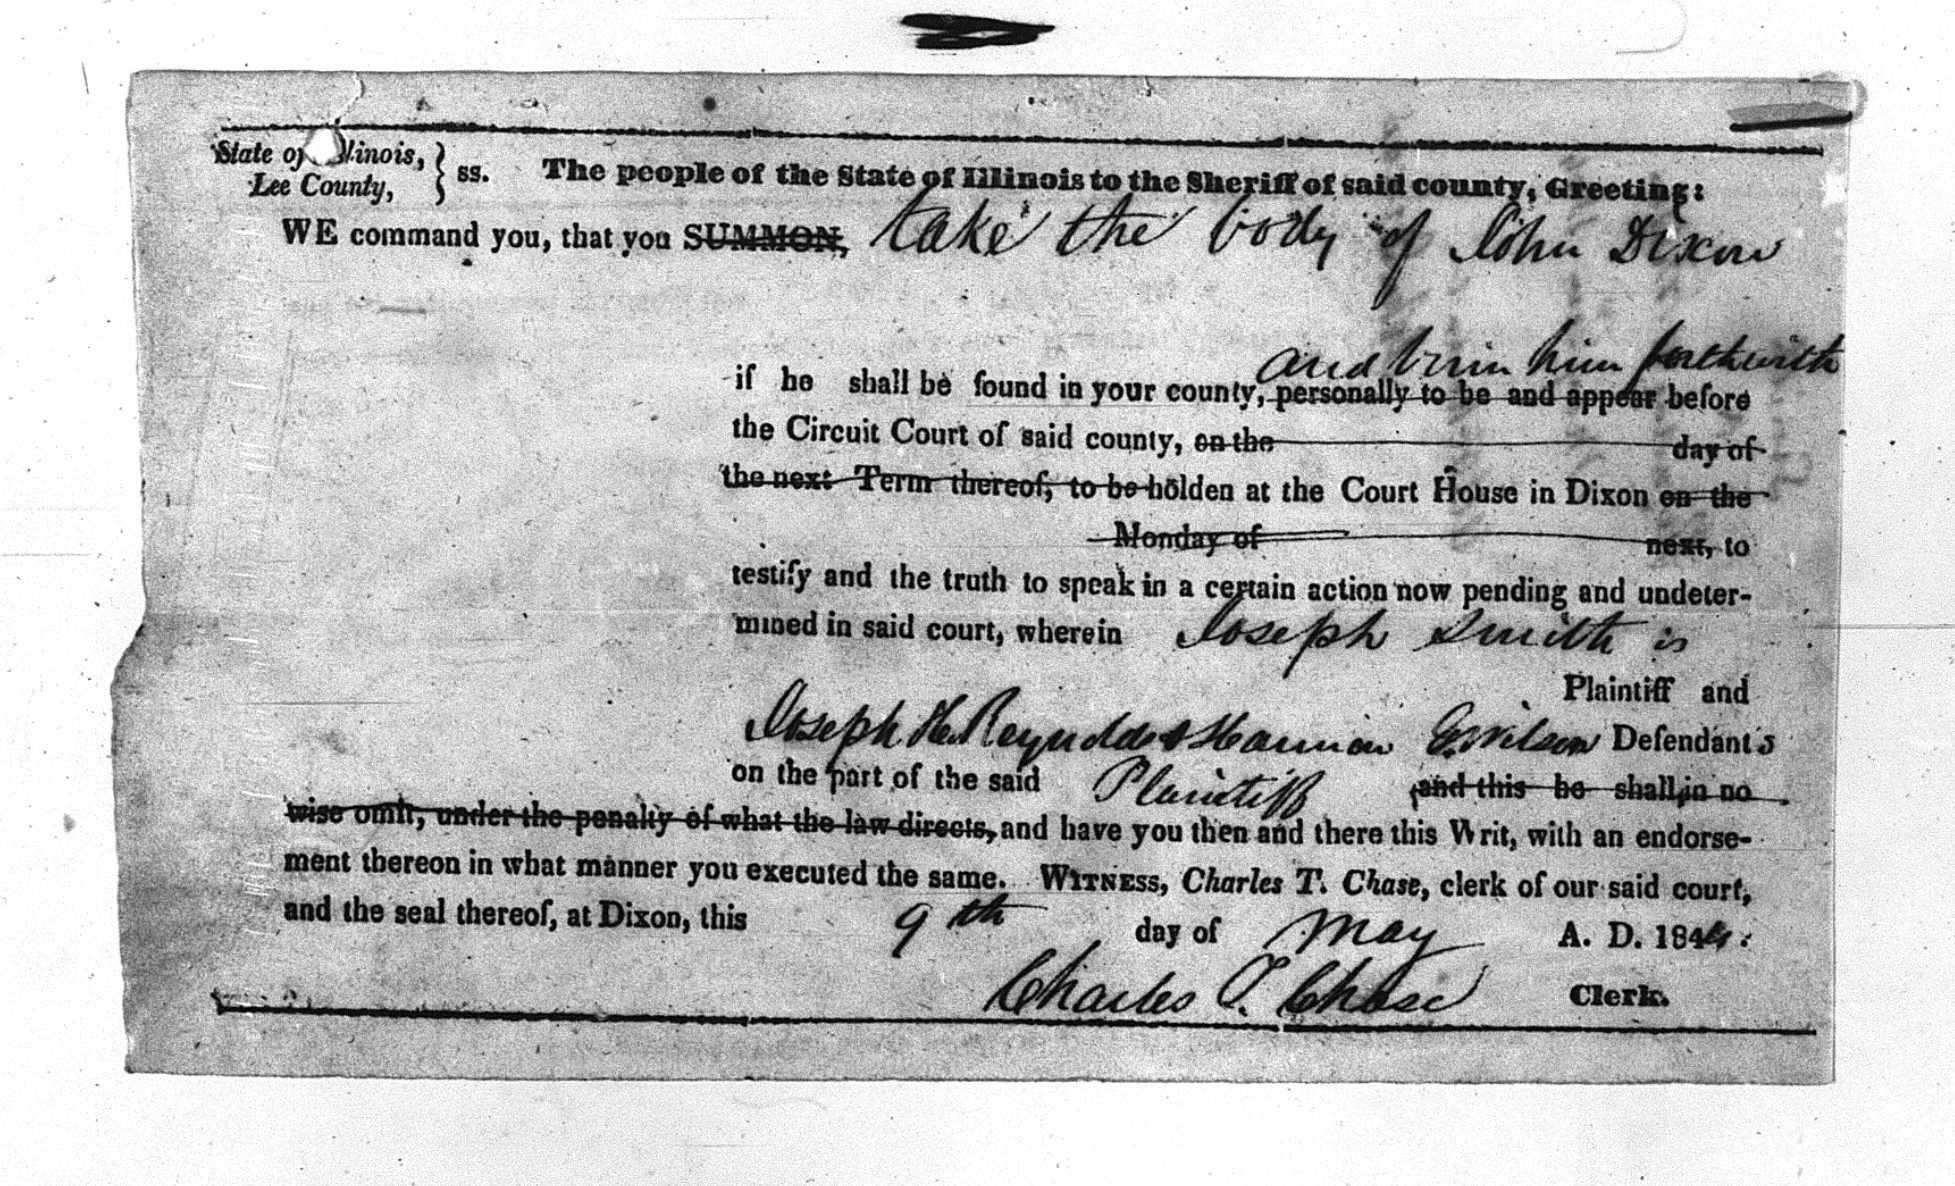 State of Illinois, } ss. The people of the State of Illinois to the Sheriff of said county, Greeting:
Lee County,
WE command you, that you SUMMON, take the body of John Dixon
and brin him forthwith
if he shall be found in your county, personally to be and appear before
the Circuit Court of said county, on the day of
the next Term thereof, to be holden at the Court House in Dixon on the
Monday of next, to
testify and the truth to speak in a certain action now pending and undeter-
mined in said court, wherein Joseph Smith is
Plaintiff and
Joseph H. Reynolds & Harmon G. Wilson Defendants
on the part of the said Plaintiff and this he shall in no
wise omit, under the penalty of what the law directs, and have you then and there this Writ, with an endorse-
ment thereon in what manner you executed the same. WITNESS, Charles T. Chase, clerk of our said court,
and the seal thereof, at Dixon, this 9th day of May A. D. 1844.
Charles T. Chase Clerk.